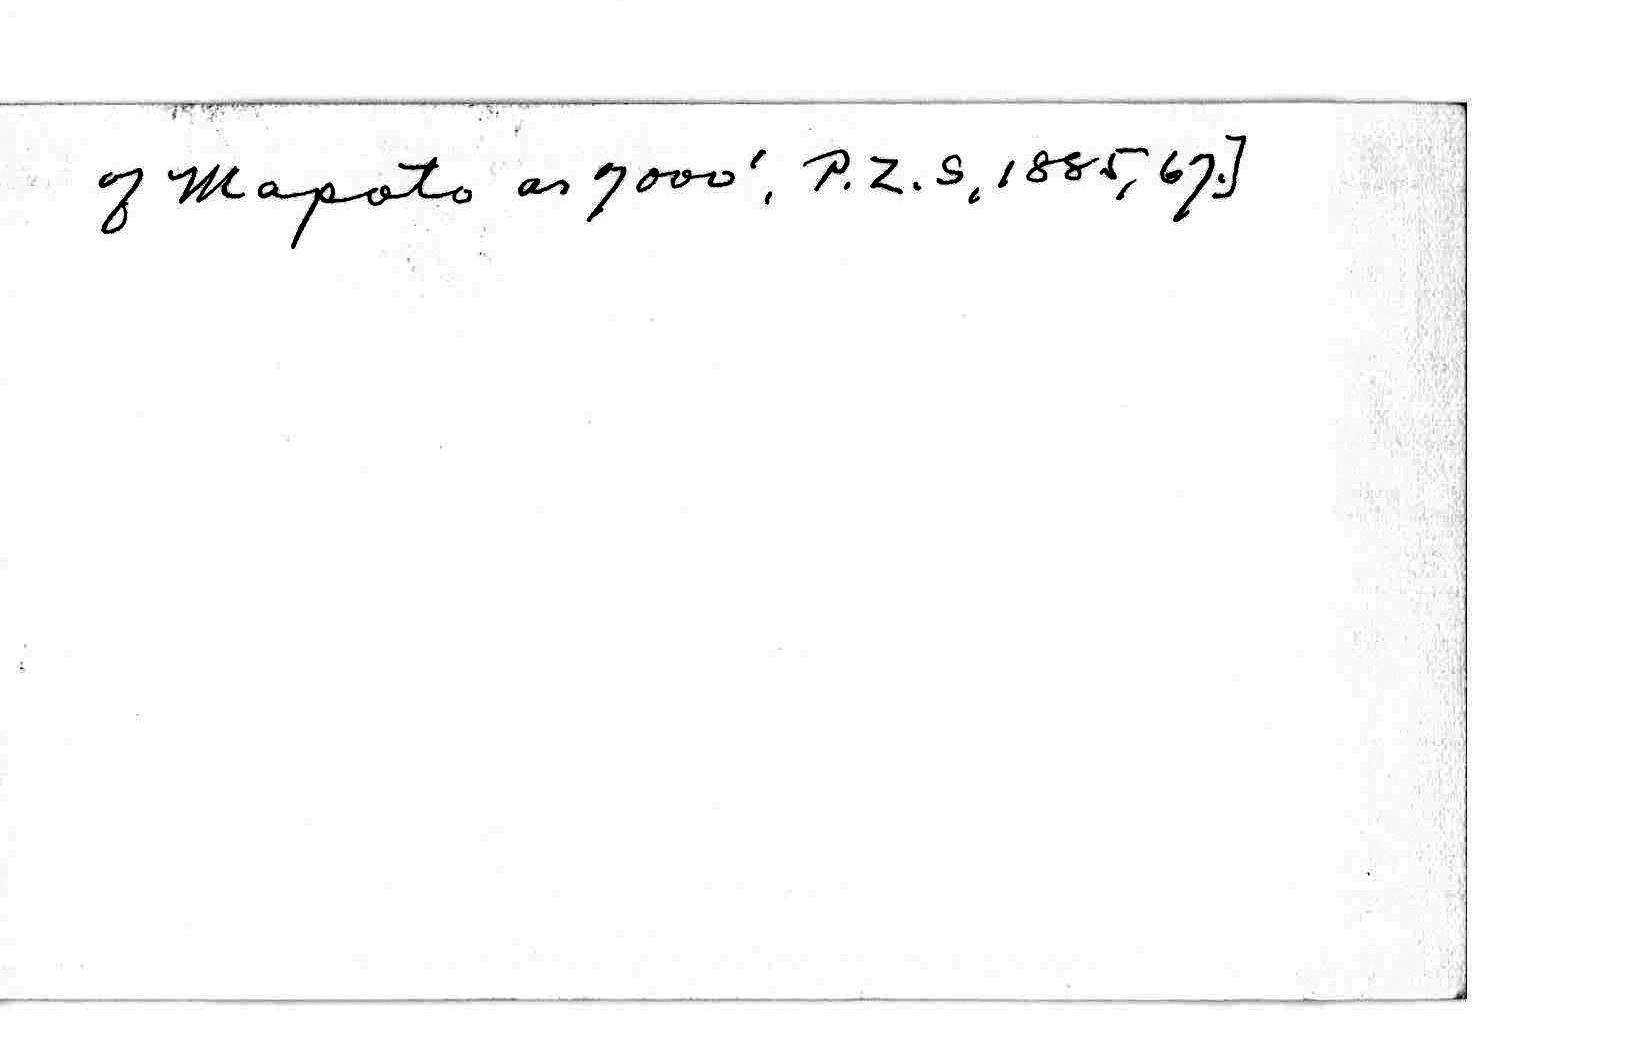 of Mapoto as 7000', P.Z.S, 1885, 67.]